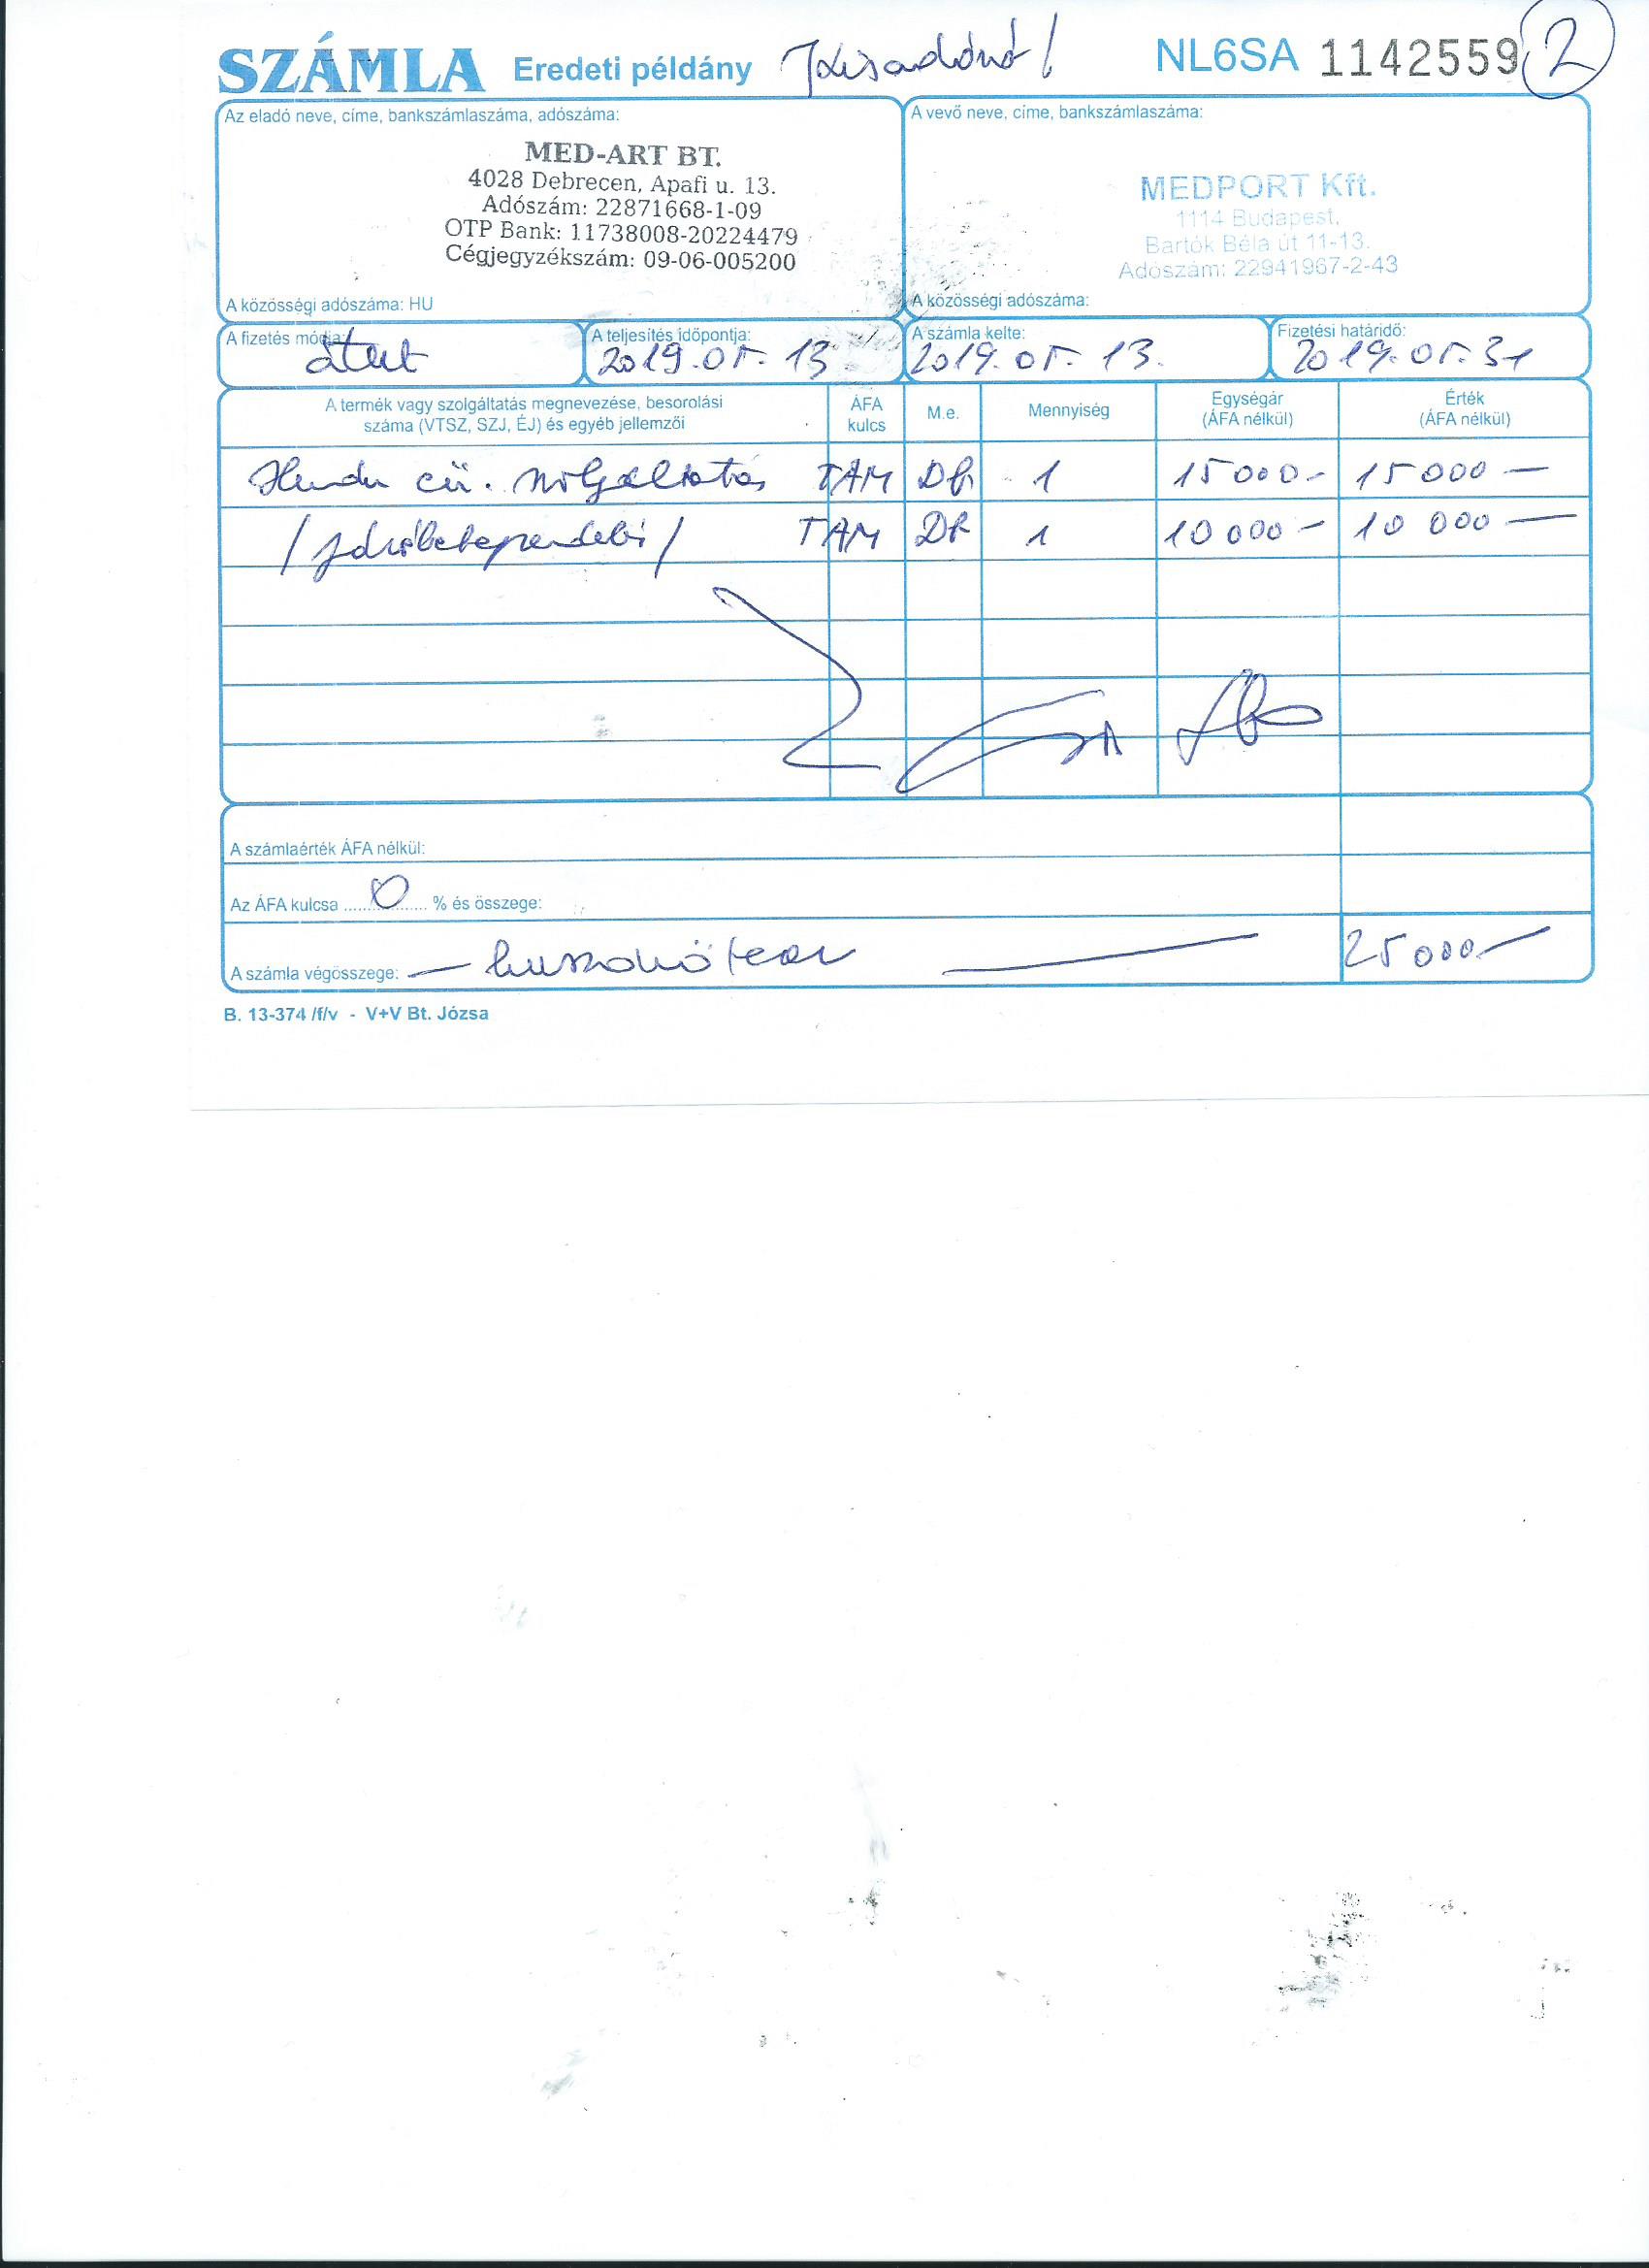 SZÁMLA Eredeti példány /Kisadózó/ NL6SA 1142559 2
Az eladó neve, címe, bankszámlaszáma, adószáma:
MED-ART BT.
4028 Debrecen, Apafi u. 13.
Adószám: 22871668-1-09
OTP Bank: 11738008-20224479
Cégjegyzékszám: 09-06-005200
A közösségi adószáma: HU
A vevő neve, címe, bankszámlaszáma:
MEDPORT Kft.
1114 Budapest,
Bartók Béla út 11-13.
Adószám: 22941967-2-43
A közösségi adószáma:
A fizetés módja: átut
A teljesítés időpontja: 2019.05.13
A számla kelte: 2019.05.13.
Fizetési határidő: 2019.05.31
A termék vagy szolgáltatás megnevezése, besorolási
száma (VTSZ, SZJ, ÉJ) és egyéb jellemzői
ÁFA
kulcs
M.e.
Mennyiség
Egységár
(ÁFA nélkül)
Érték
(ÁFA nélkül)
eü. szolgáltatás TAM Db. 1 15000- 15000-
TAM Db 1 10000- 10 000-
A számlaérték ÁFA nélkül:
Az ÁFA kulcsa 0 % és összege:
A számla végösszege: - huszonötezer - 25000-
B. 13-374 /f/v - V+V Bt. Józsa